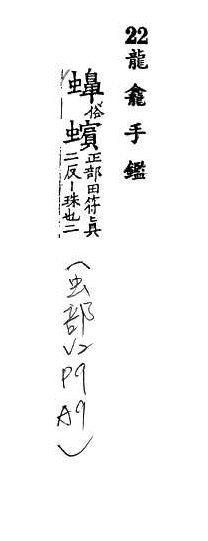 22 龍龕手鑑
俗蠙正部田符眞
二反—珠也二
(虫部 V2 P9 A9)